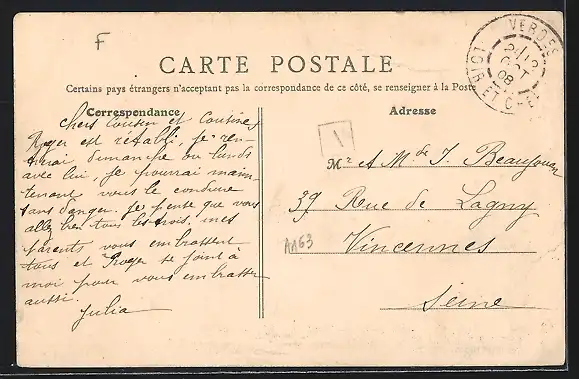 F
CARTE POSTALE
Certains pays étrangers n'acceptant pas la correspondance de ce côté, se renseigner à la Poste
Correspondance
chers Cousin et Cousine
Roger est rétabli, je ren-
trerai dimanche ou lundi
avec lui, je pourrai main
tenant vous le conduire
sans danger. je pense que vous
allez bien tous les trois, mes
parents vous embrassent
tous et Roger se joint à
moi pour vous embrasser
aussi.
Julia
Adresse
A
Mr et Mde J. Beaujouan
39 Rue de Lagny
Vincennes
Seine
A263
VERDES
OCT
08
LOIR ET CHER